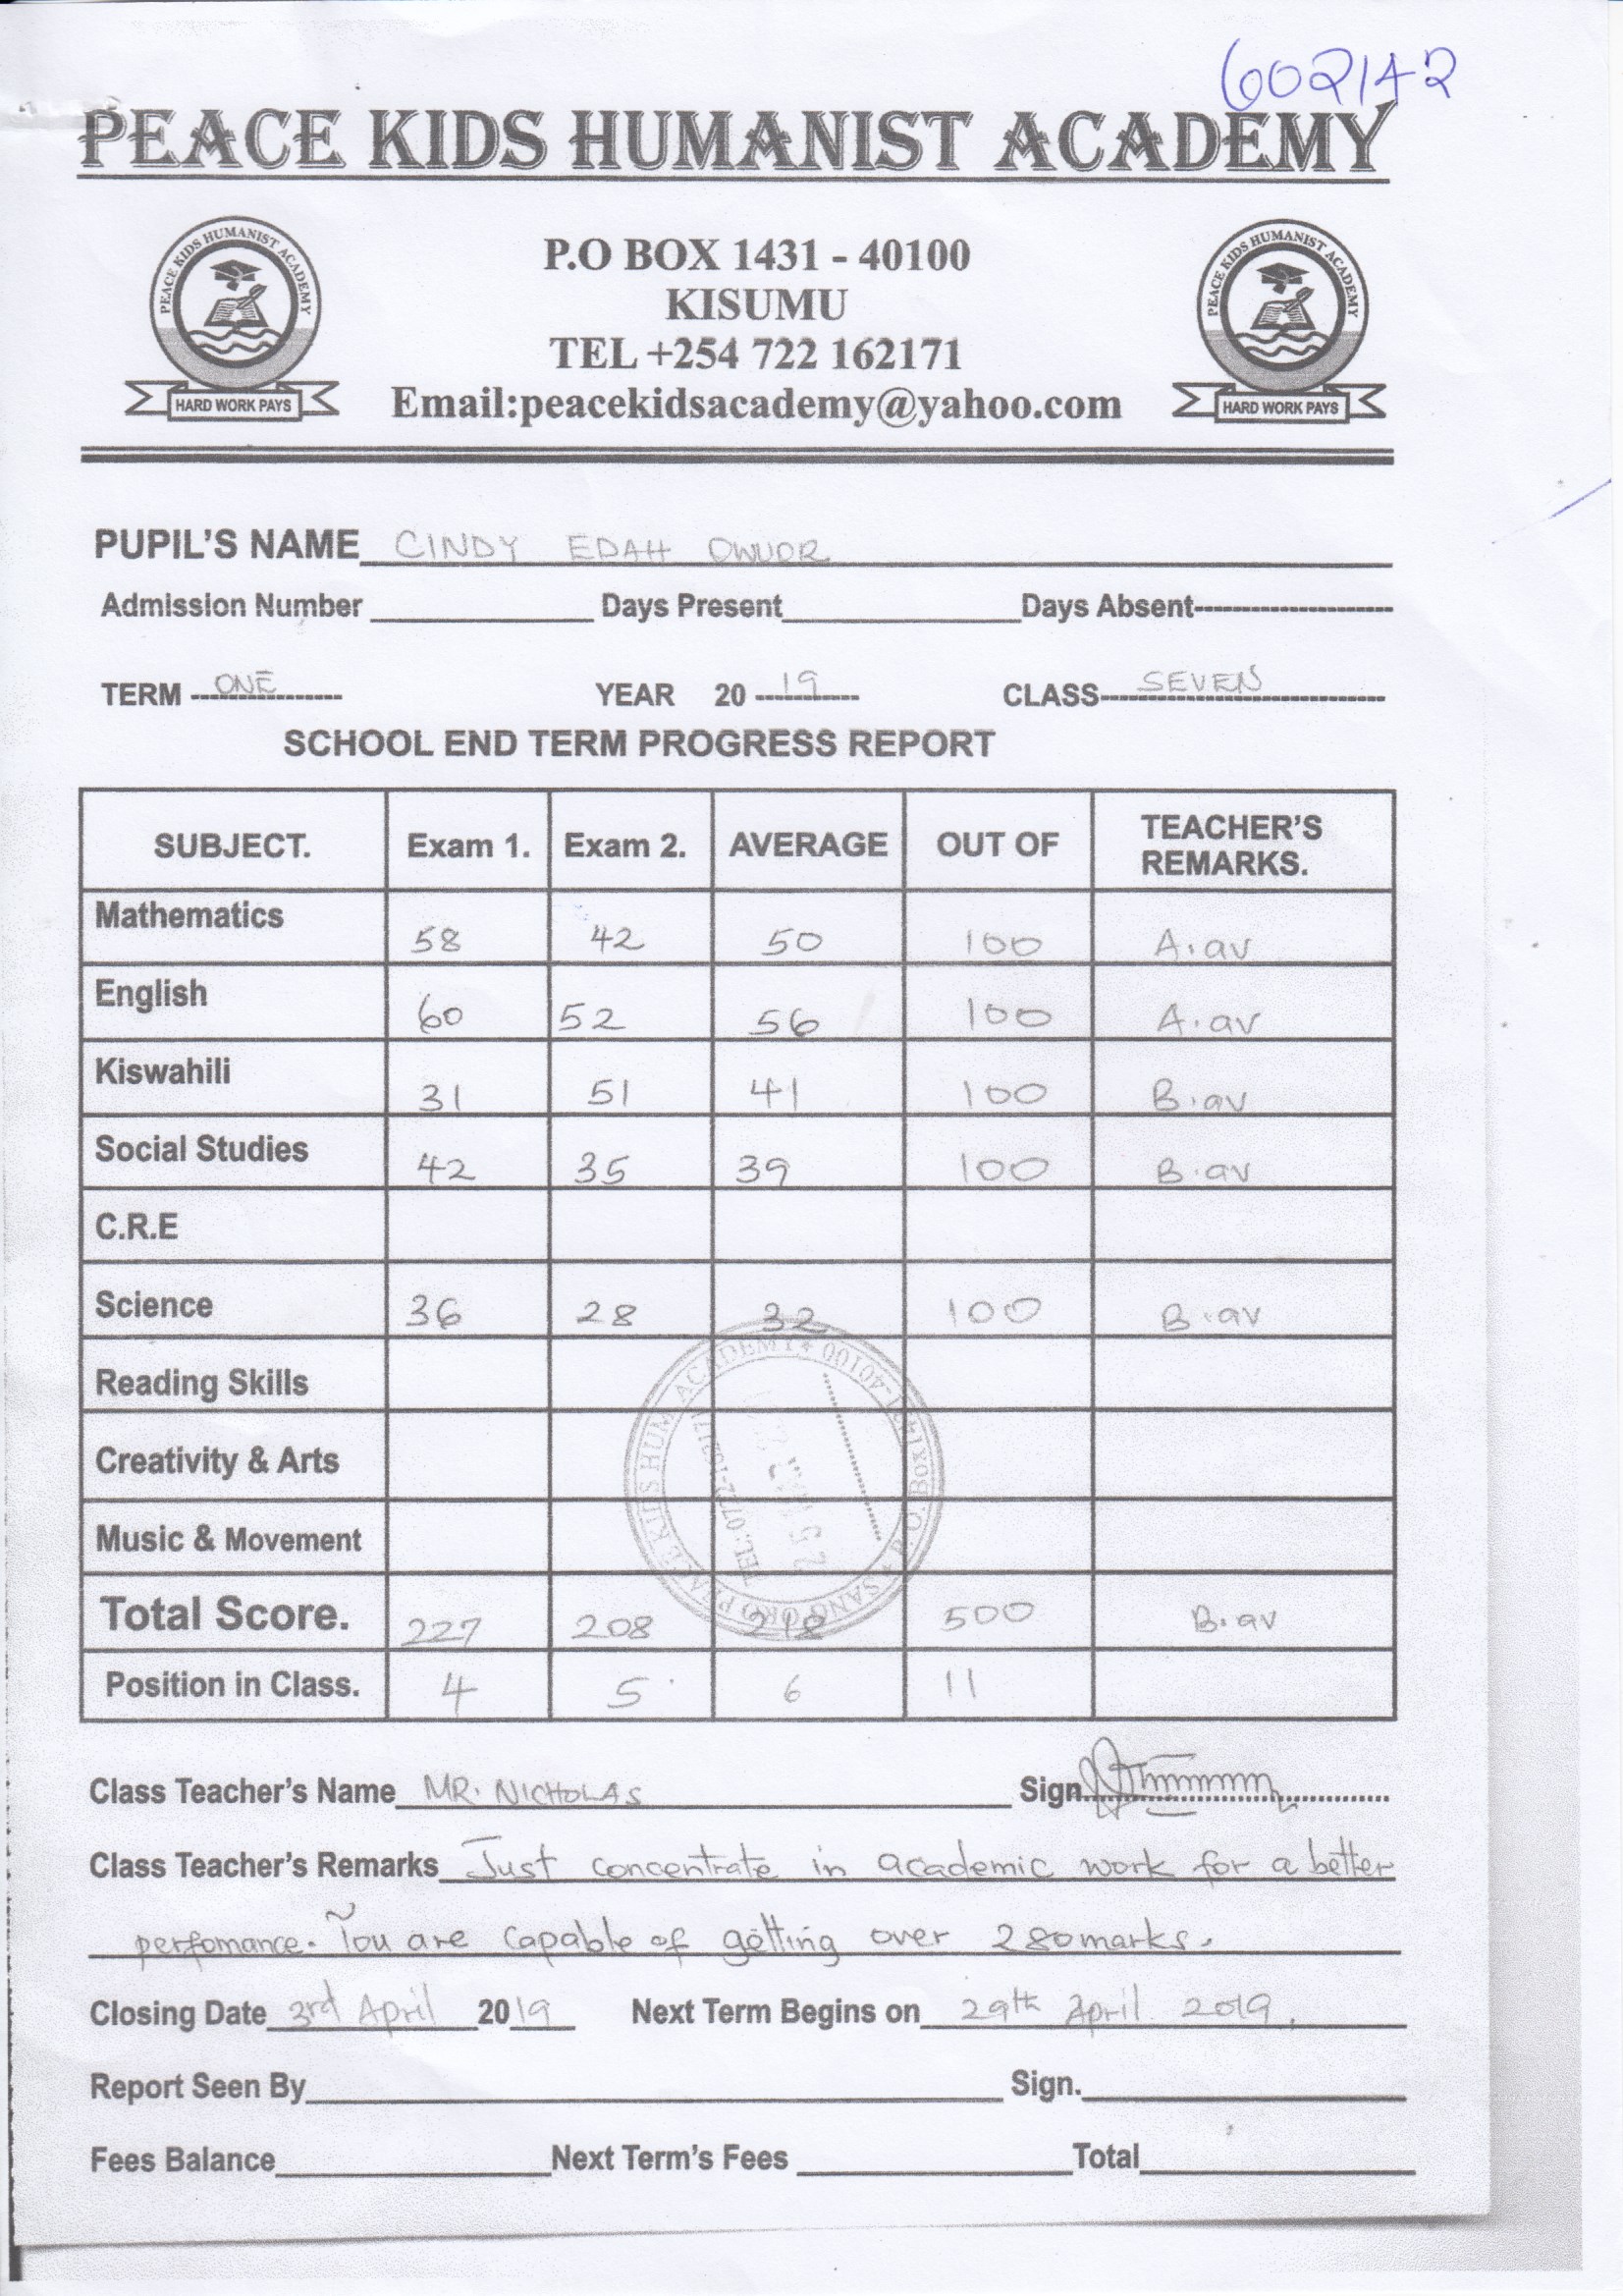 602142
PEACE KIDS HUMANIST ACADEMY
PEACE KIDS HUMANIST ACADEMY
HARD WORK PAYS
P.O BOX 1431 - 40100
KISUMU
TEL +254 722 162171
Email:peacekidsacademy@yahoo.com
PEACE KIDS HUMANIST ACADEMY
HARD WORK PAYS
PUPIL'S NAME CINDY EDAH OWUOR
Admission Number Days Present Days Absent
TERM ONE YEAR 2019 CLASS SEVEN
SCHOOL END TERM PROGRESS REPORT
SUBJECT. Exam 1. Exam 2. AVERAGE OUT OF TEACHER'S REMARKS.
Mathematics 58 42 50 100 A.av
English 60 52 56 100 A.av
Kiswahili 31 51 41 100 B.av
Social Studies 42 35 39 100 B.av
C.R.E
Science 36 28 32 100 B.av
Reading Skills
Creativity & Arts
Music & Movement
Total Score. 227 208 218 500 B.av
Position in Class. 4 5 6 11
Class Teacher's Name MR. NICHOLAS Sign
Class Teacher's Remarks Just concentrate in academic work for a better
perfomance. You are capable of getting over 280marks.
Closing Date 3rd April 2019 Next Term Begins on 29th April 2019.
Report Seen By Sign.
Fees Balance Next Term's Fees Total